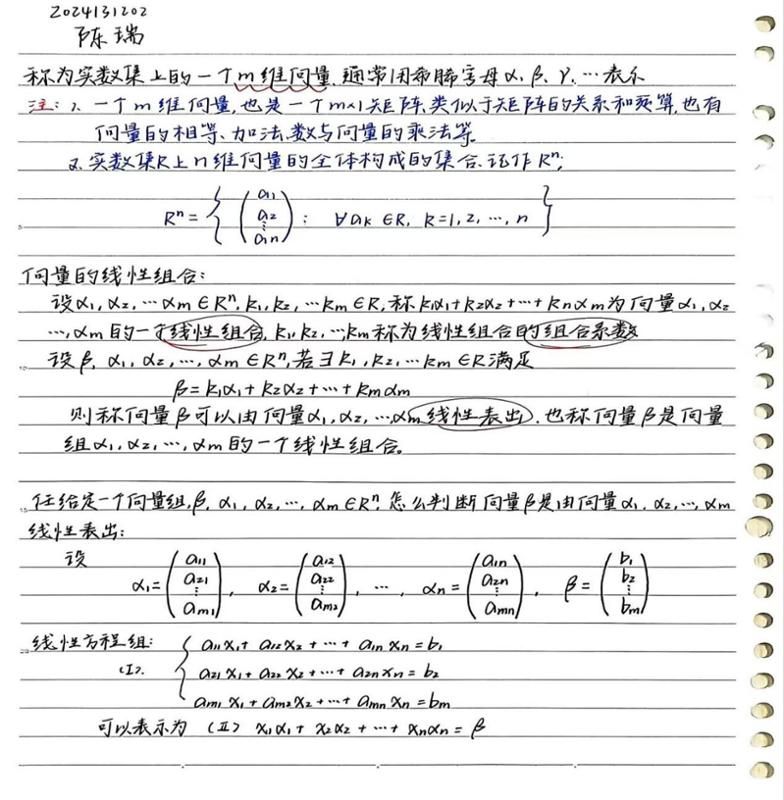 2024131202
陈瑞
称为实数集上的一个m维向量,通常用希腊字母α、β、γ、…表示
注:1、一个m维向量,也是一个m×1矩阵,类似于矩阵的关系和运算,也有
向量的相等、加法、数与向量的乘法等.
2、实数集R上n维向量的全体构成的集合,记作Rⁿ;
Rⁿ={(a₁₁ a₂ ⋮ a₁ₙ): ∀aₖ∈R, k=1,2,…,n}
向量的线性组合:
设α₁,α₂,…αm∈Rⁿ,k₁,k₂,…km∈R,称k₁α₁+k₂α₂+…+knαm为向量α₁,α₂
…,αm的一个线性组合,k₁,k₂,…,km称为线性组合的组合系数
设β,α₁,α₂,…,αm∈Rⁿ,若∃k₁,k₂,…km∈R满足
β=k₁α₁+k₂α₂+…+kmαm
则称向量β可以由向量α₁,α₂,…,αm线性表出,也称向量β是向量
组α₁,α₂,…,αm的一个线性组合。
任给定一个向量组,β,α₁,α₂,…,αm∈Rⁿ,怎么判断向量β是由向量α₁,α₂,…,αm
线性表出:
设
α₁=(a₁₁ a₂₁ ⋮ am₁), α₂=(a₁₂ a₂₂ ⋮ am₂), …, αn=(a₁n a₂n ⋮ amn), β=(b₁ b₂ ⋮ bm)
线性方程组: a₁₁x₁+a₁₂x₂+…+a₁nxn=b₁
(I). a₂₁x₁+a₂₂x₂+…+a₂nxn=b₂
am₁x₁+am₂x₂+…+amnxn=bm
可以表示为 (II) x₁α₁+x₂α₂+…+xnαn=β